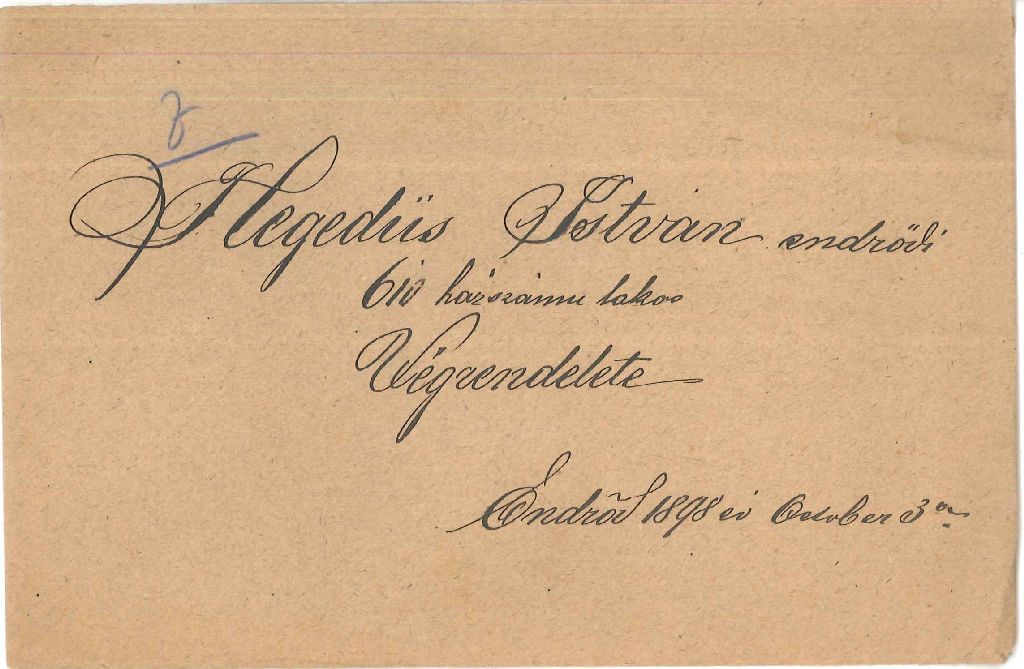 Hegedüs István endrődi
610 házszámu lakos
Végrendelete
Endrőd 1898 év October 3án